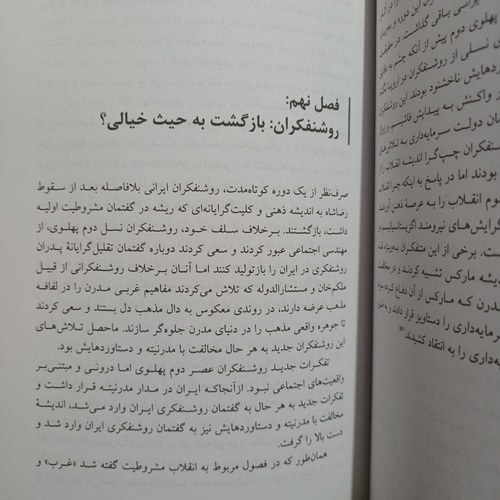 فصل نهم:
روشنفکران: بازگشت به حیث خیالی؟
صرف‌نظر از یک دوره کوتاه‌مدت، روشنفکران ایرانی بلافاصله بعد از سقوط
رضاشاه به اندیشه ذهنی و کلیت‌گرایانه‌ای که ریشه در گفتمان مشروطیت اولیه
داشت، بازگشتند. برخلاف سلف خود، روشنفکران نسل دوم پهلوی، از
مهندسی اجتماعی عبور کردند و سعی کردند دوباره گفتمان تقلیل‌گرایانهٔ پدران
روشنفکری در ایران را بازتولید کنند اما آنان برخلاف روشنفکرانی از قبیل
ملکم‌خان و مستشارالدوله که تلاش می‌کردند مفاهیم غربی مدرن را در لفافه
مذهب عرضه دارند، در روندی معکوس به دال مذهب دل بستند و سعی کردند
تا جوهره واقعی مذهب را در دنیای مدرن جلوه‌گر سازند. ماحصل تلاش‌های
این روشنفکران جدید به هر حال مخالفت با مدرنیته و دستاوردهایش بود.
تفکرات جدید روشنفکران عصر دوم پهلوی اما درونی و مبتنی بر
واقعیت‌های اجتماعی نبود. ازآنجاکه ایران در مدار مدرنیته قرار داشت و
تفکرات جدید به هر حال به گفتمان روشنفکری ایران وارد می‌شد، اندیشهٔ
مخالفت با مدرنیته و دستاوردهایش نیز به گفتمان روشنفکری ایران وارد شد و
دست بالا را گرفت.
همان‌طور که در فصول مربوط به انقلاب مشروطیت گفته شد «غرب» و
یراسی باقی گذاشت.
پهلوی دوم پیش از آنکه چشم به
نسلی از روشنفکران در اروپا
ردهایش ناخشنود بودند. این روشنفکران
واکنش به پیدایش فاشیسم و
دولت سرمایه‌داری به تلاش‌های
فکران چپ‌گرا اندیشه انقلاب
بودند اما در پاسخ به اینکه چرا انقلاب
انقلاب را به عرصهٔ ذهن آوردند
گرایش‌های نیرومند اگزیستانسیالیسم و
ست، برخی از این متفکران به‌ویژه
یشه مارکس تشبیه کردند و در مخالفت
مدرن که مارکس از آن دفاع کرده
رمایه‌داری را دستاویز قرار دادند و به
ه‌داری را به انتقاد کشیدند.